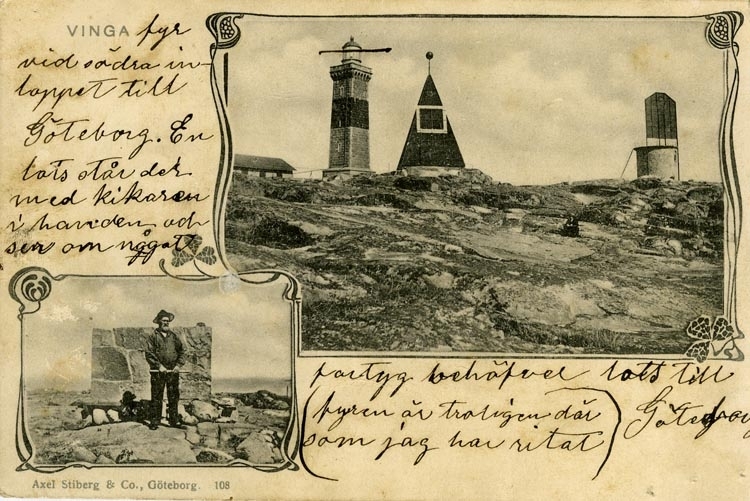 VINGA fyr
vid södra in-
loppet till
Göteborg. En
lots står der
med kikaren
i handen och
ser om något
fartyg behöfver lots till
Göteborg
(fyren är troligen där
som jag har ritat)
Axel Stiberg & Co., Göteborg. 108